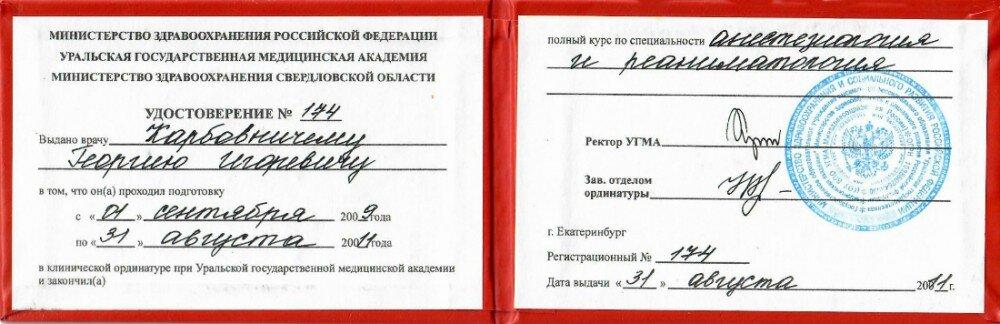 МИНИСТЕРСТВО ЗДРАВООХРАНЕНИЯ РОССИЙСКОЙ ФЕДЕРАЦИИ
УРАЛЬСКАЯ ГОСУДАРСТВЕННАЯ МЕДИЦИНСКАЯ АКАДЕМИЯ
МИНИСТЕРСТВО ЗДРАВООХРАНЕНИЯ СВЕРДЛОВСКОЙ ОБЛАСТИ
УДОСТОВЕРЕНИЕ № 174
Выдано врачу Карбовничему
Георгию Игоревичу
в том, что он(а) проходил подготовку
с «01» сентября 2009 года
по «31» августа 2011 года
в клинической ординатуре при Уральской государственной медицинской академии
и закончил(а)
полный курс по специальности анестезиология
и реаниматология
Ректор УГМА
Зав. отделом
ординатуры
г. Екатеринбург
Регистрационный № 174
Дата выдачи «31» августа 2011г.